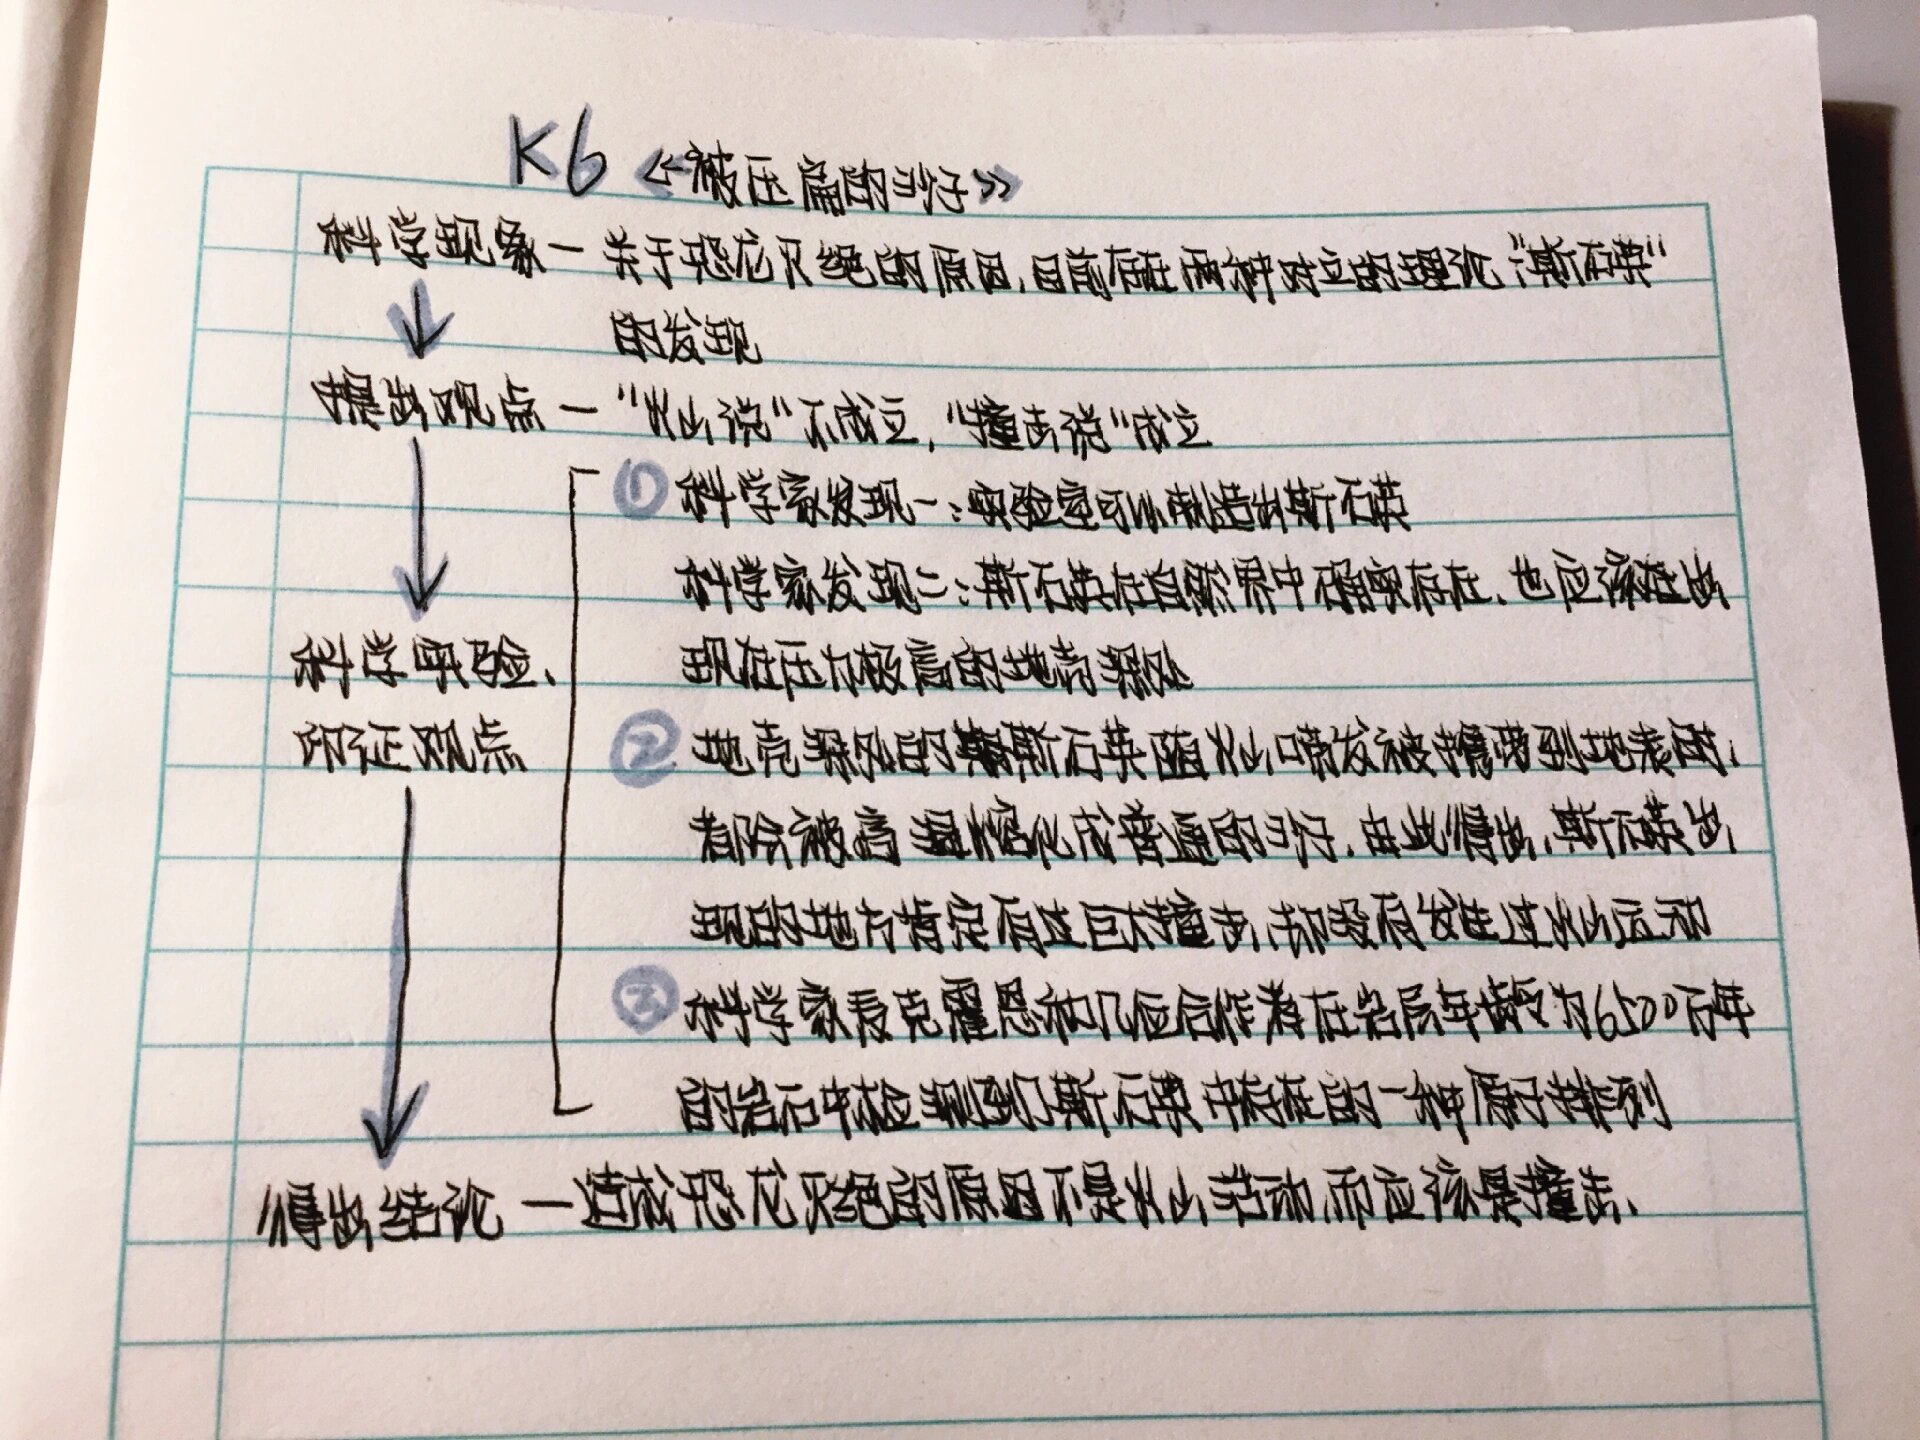 K6《被压扁的沙子》
科学现象—关于恐龙灭绝的原因，目前存在两种对立的理论，“斯石英”
的发现
提出观点—“火山说”不成立，“撞击说”成立
①科学家发现一：实验室可以制造出斯石英
科学家发现二：斯石英在自然界中确实存在，也应该在出
现在压力极高的地壳深处
科学实验、
印证观点
②地壳深处的斯石英随火山喷发被携带到地表面，
都会被高温熔化成普通的沙子，由此得出，斯石英出
现的地方肯定有过巨大撞击，却没有发生过火山运动
③科学家麦克霍恩和几位合作者在岩层年龄为6500万年
的岩石中检测到了斯石英中存在的一种原子排列
得出结论—造成恐龙灭绝的原因不是火山活动，而应该是撞击、